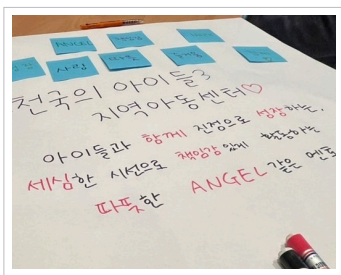 사랑
천국의 아이들3
지역아동센터♡
아이들과 함께 진정으로 성장하는,
세심한 시선으로 책임감 있게 활동하는
따뜻한 ANGEL 같은 멘토